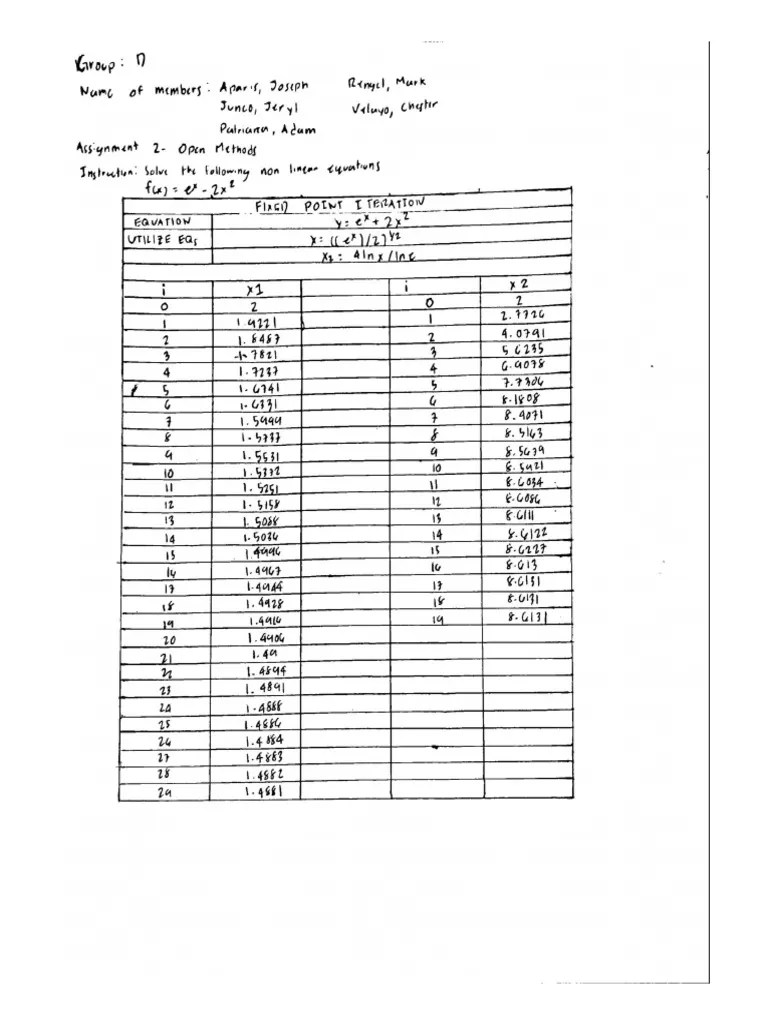 Group: D
Name of members: Aparis, Joseph Rengel, Mark
Junco, Jeryl Velayo, Chester
Patriarca, Adam
Assignment 2- Open Methods
Instruction: Solve the following non linear equations
f(x) = e^x - 2x^2
FIXED POINT ITERATION
EQUATION y= e^x + 2x^2
UTILIZE EQs x= ((e^x)/2)^1/2
x2= 4lnx/lne
i x1 i x2
0 2 0 2
1 1.9221 1 2.7726
2 1.8487 2 4.0791
3 1.7821 3 5.6235
4 1.7237 4 6.9078
5 1.6741 5 7.7306
6 1.6331 6 8.1808
7 1.5999 7 8.4071
8 1.5737 8 8.5163
9 1.5531 9 8.5679
10 1.5372 10 8.5921
11 1.5251 11 8.6034
12 1.5158 12 8.6086
13 1.5088 13 8.6111
14 1.5036 14 8.6122
15 1.4996 15 8.6227
16 1.4967 16 8.613
17 1.4944 17 8.6131
18 1.4928 18 8.6131
19 1.4916 19 8.6131
20 1.4906
21 1.49
22 1.4894
23 1.4891
24 1.4888
25 1.4886
26 1.4884
27 1.4883
28 1.4882
29 1.4881